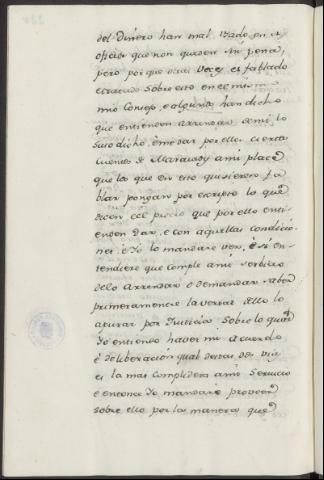 del Dinero han mal usado en sus
oficios que non queden sin pena,
pero porque otras veces es fablado
e tratado sobre esto en el mismo
mio Consejo, e algunos han dicho
que entienden Arrendar de mi, lo
suso dicho, e me dar por ello, cierta
cuentos de Maravedis a mi place
que los que en esto quisieren fa
blar pongan por escripto lo que
dicen e el precio que por ello enti
enden Dar, e con aquellas condicio
nes, e Yo lo mandare ver, e si en
tendiere que cumple a mi servicio
de lo Arrendar o demandar saber
primeramente la verdad dello lo
apurar por Justicia sobre lo qual
Yo entiendo haver mi Acuerdo
e deliberacion qual destas dos vias
es la mas complidera a mi Servicio
e entonce Yo mandare proveer
sobre ello por la manera que